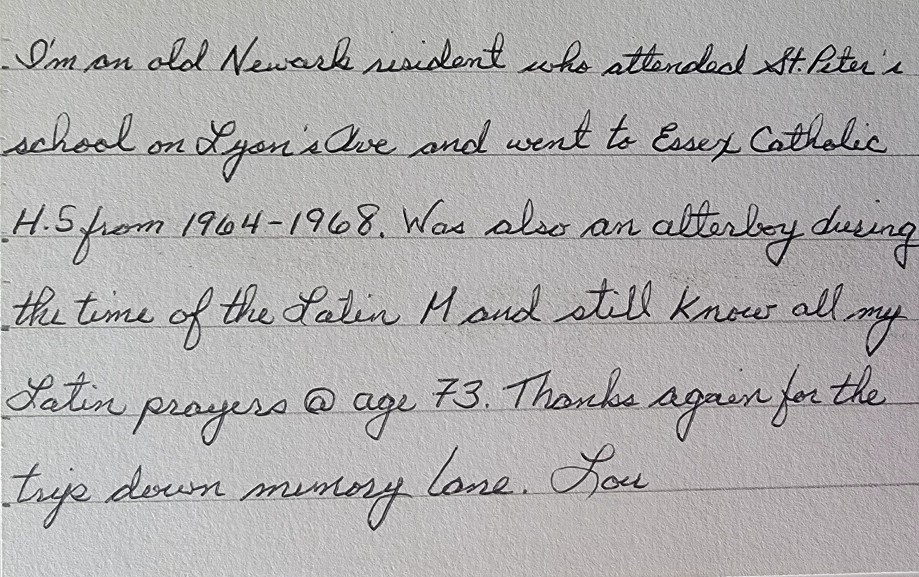 I'm an old Newark resident who attended St. Peter's
school on Lyon's Ave and went to Essex Catholic
H.S from 1964-1968. Was also an alterboy during
the time of the Latin M and still know all my
Latin prayers @ age 73. Thanks again for the
trip down memory lane. Lou